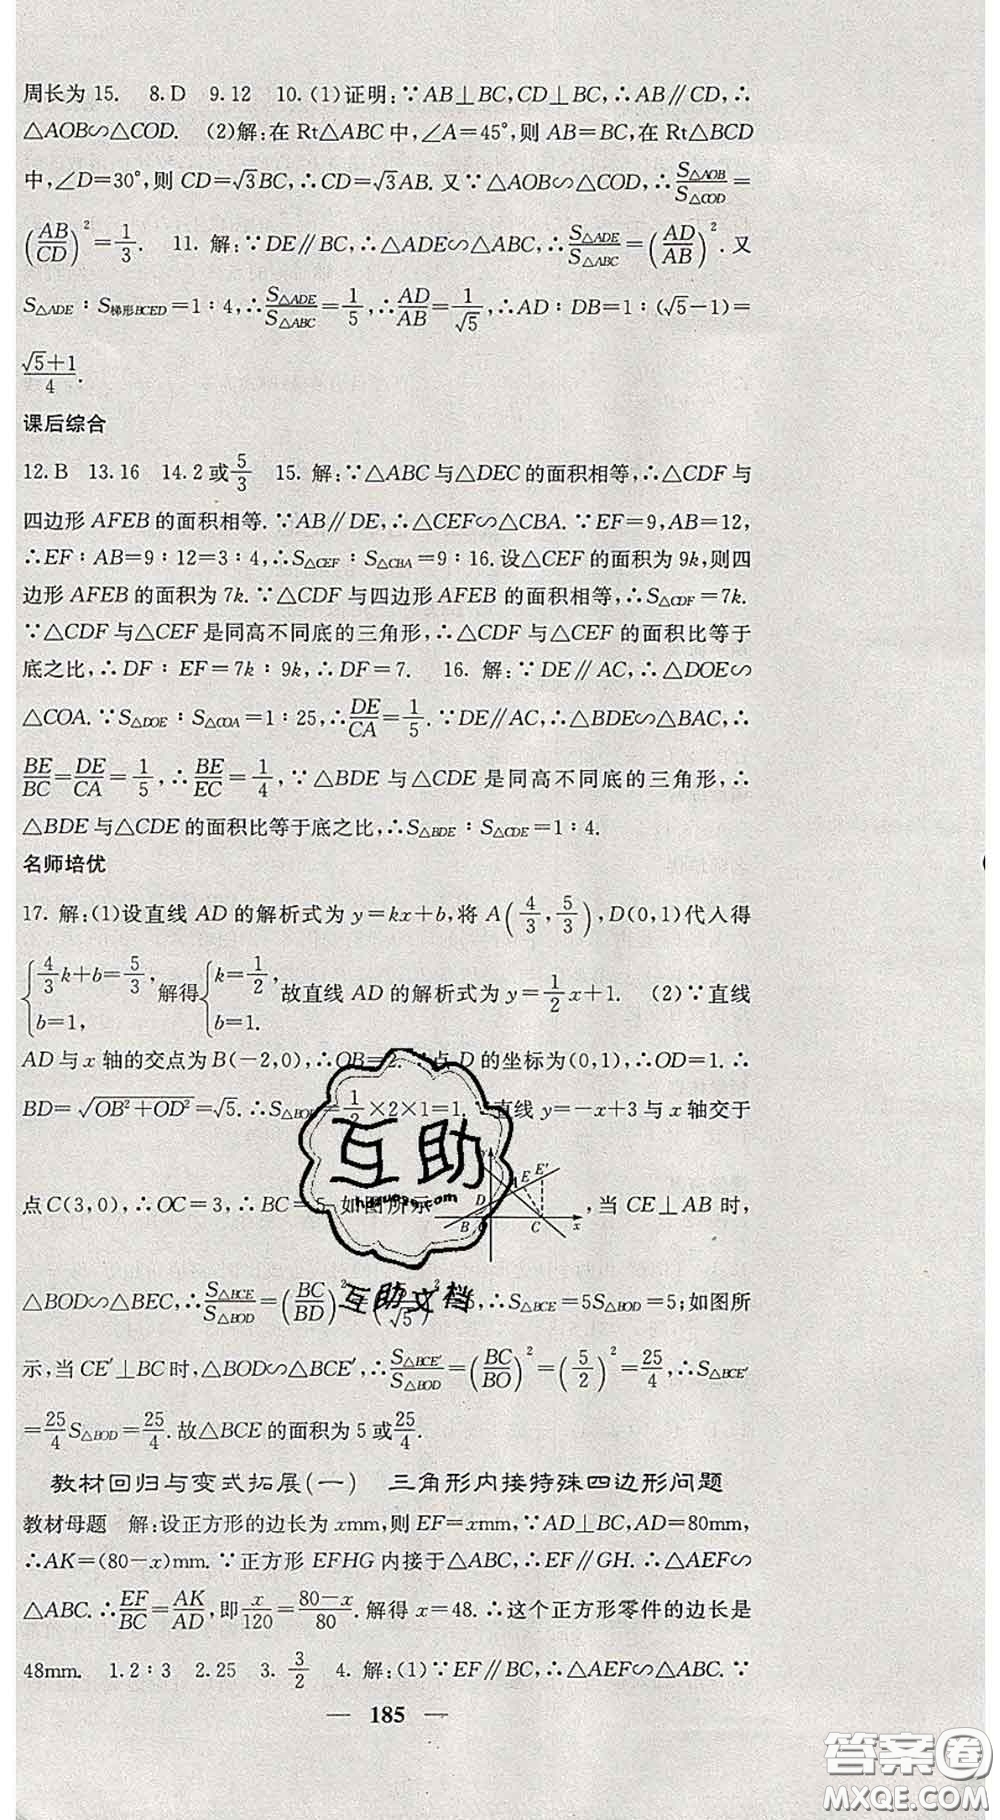 周长为 15.　8.D　9.12　10.(1)证明:∵AB⊥BC,CD⊥BC,∴AB∥CD,∴
△AOB∽△COD.　(2)解:在 Rt△ABC 中,∠A=45°,则 AB=BC,在 Rt△BCD
中,∠D=30°,则 CD=√3BC,∴CD=√3AB.又∵△AOB∽△COD,∴S△AOB/S△COD=
(AB/CD)²=1/3.　11. 解:∵DE∥BC,∴△ADE∽△ABC,∴S△ADE/S△ABC=(AD/AB)².又
S△ADE∶S梯形BCED=1∶4,∴S△ADE/S△ABC=1/5,∴AD/AB=1/√5,∴AD∶DB=1∶(√5−1)=
(√5+1)/4.
课后综合
12.B　13.16　14.2 或 5/3　15. 解:∵△ABC 与△DEC 的面积相等,∴△CDF 与
四边形 AFEB 的面积相等.∵AB∥DE,∴△CEF∽△CBA.∵EF=9,AB=12,
∴EF∶AB=9∶12=3∶4,∴S△CEF∶S△CBA=9∶16.设△CEF 的面积为 9k,则四
边形 AFEB 的面积为 7k.∵△CDF 与四边形 AFEB 的面积相等,∴S△CDF=7k.
∵△CDF 与△CEF 是同高不同底的三角形,∴△CDF 与△CEF 的面积比等于
底之比,∴DF∶EF=7k∶9k,∴DF=7.　16. 解:∵DE∥AC,∴△DOE∽
△COA.∵S△DOE∶S△COA=1∶25,∴DE/CA=1/5.∵DE∥AC,∴△BDE∽△BAC,∴
BE/BC=DE/CA=1/5,∴BE/EC=1/4.∵△BDE 与△CDE 是同高不同底的三角形,∴
△BDE 与△CDE 的面积比等于底之比,∴S△BDE∶S△CDE=1∶4.
名师培优
17. 解:(1)设直线 AD 的解析式为 y=kx+b,将 A(4/3,5/3),D(0,1)代人得
{4/3k+b=5/3, b=1, 解得{k=1/2, b=1. 故直线 AD 的解析式为 y=1/2x+1.　(2)∵直线
AD 与 x 轴的交点为 B(−2,0),∴OB=2.∵点 D 的坐标为(0,1),∴OD=1.∴
BD=√(OB²+OD²)=√5.∴S△BOD=1/2×2×1=1.∵直线 y=−x+3 与 x 轴交于
点 C(3,0),∴OC=3,∴BC=5.如图所示 y A E E′ D B O C x ,当 CE⊥AB 时,
△BOD∽△BEC,∴S△BCE/S△BOD=(BC/BD)²=(5/√5)²=5,∴S△BCE=5S△BOD=5;如图所
示,当 CE′⊥BC 时,△BOD∽△BCE′,∴S△BCE′/S△BOD=(BC/BO)²=(5/2)²=25/4,∴S△BCE′
=25/4S△BOD=25/4.故△BCE 的面积为 5 或25/4.
教材回归与变式拓展(一)　三角形内接特殊四边形问题
教材母题　解:设正方形的边长为 xmm,则 EF=xmm,∵AD⊥BC,AD=80mm,
∴AK=(80−x)mm.∵正方形 EFHG 内接于△ABC,∴EF∥GH.∴△AEF∽
△ABC.∴EF/BC=AK/AD,即x/120=(80−x)/80.解得 x=48.∴这个正方形零件的边长是
48mm.　1.2∶3　2.25　3. 3/2　4. 解:(1)∵EF∥BC,∴△AEF∽△ABC.∵
— 185 —
互助
hdzuoye.com
互助文档
答案圈
MXQE.COM